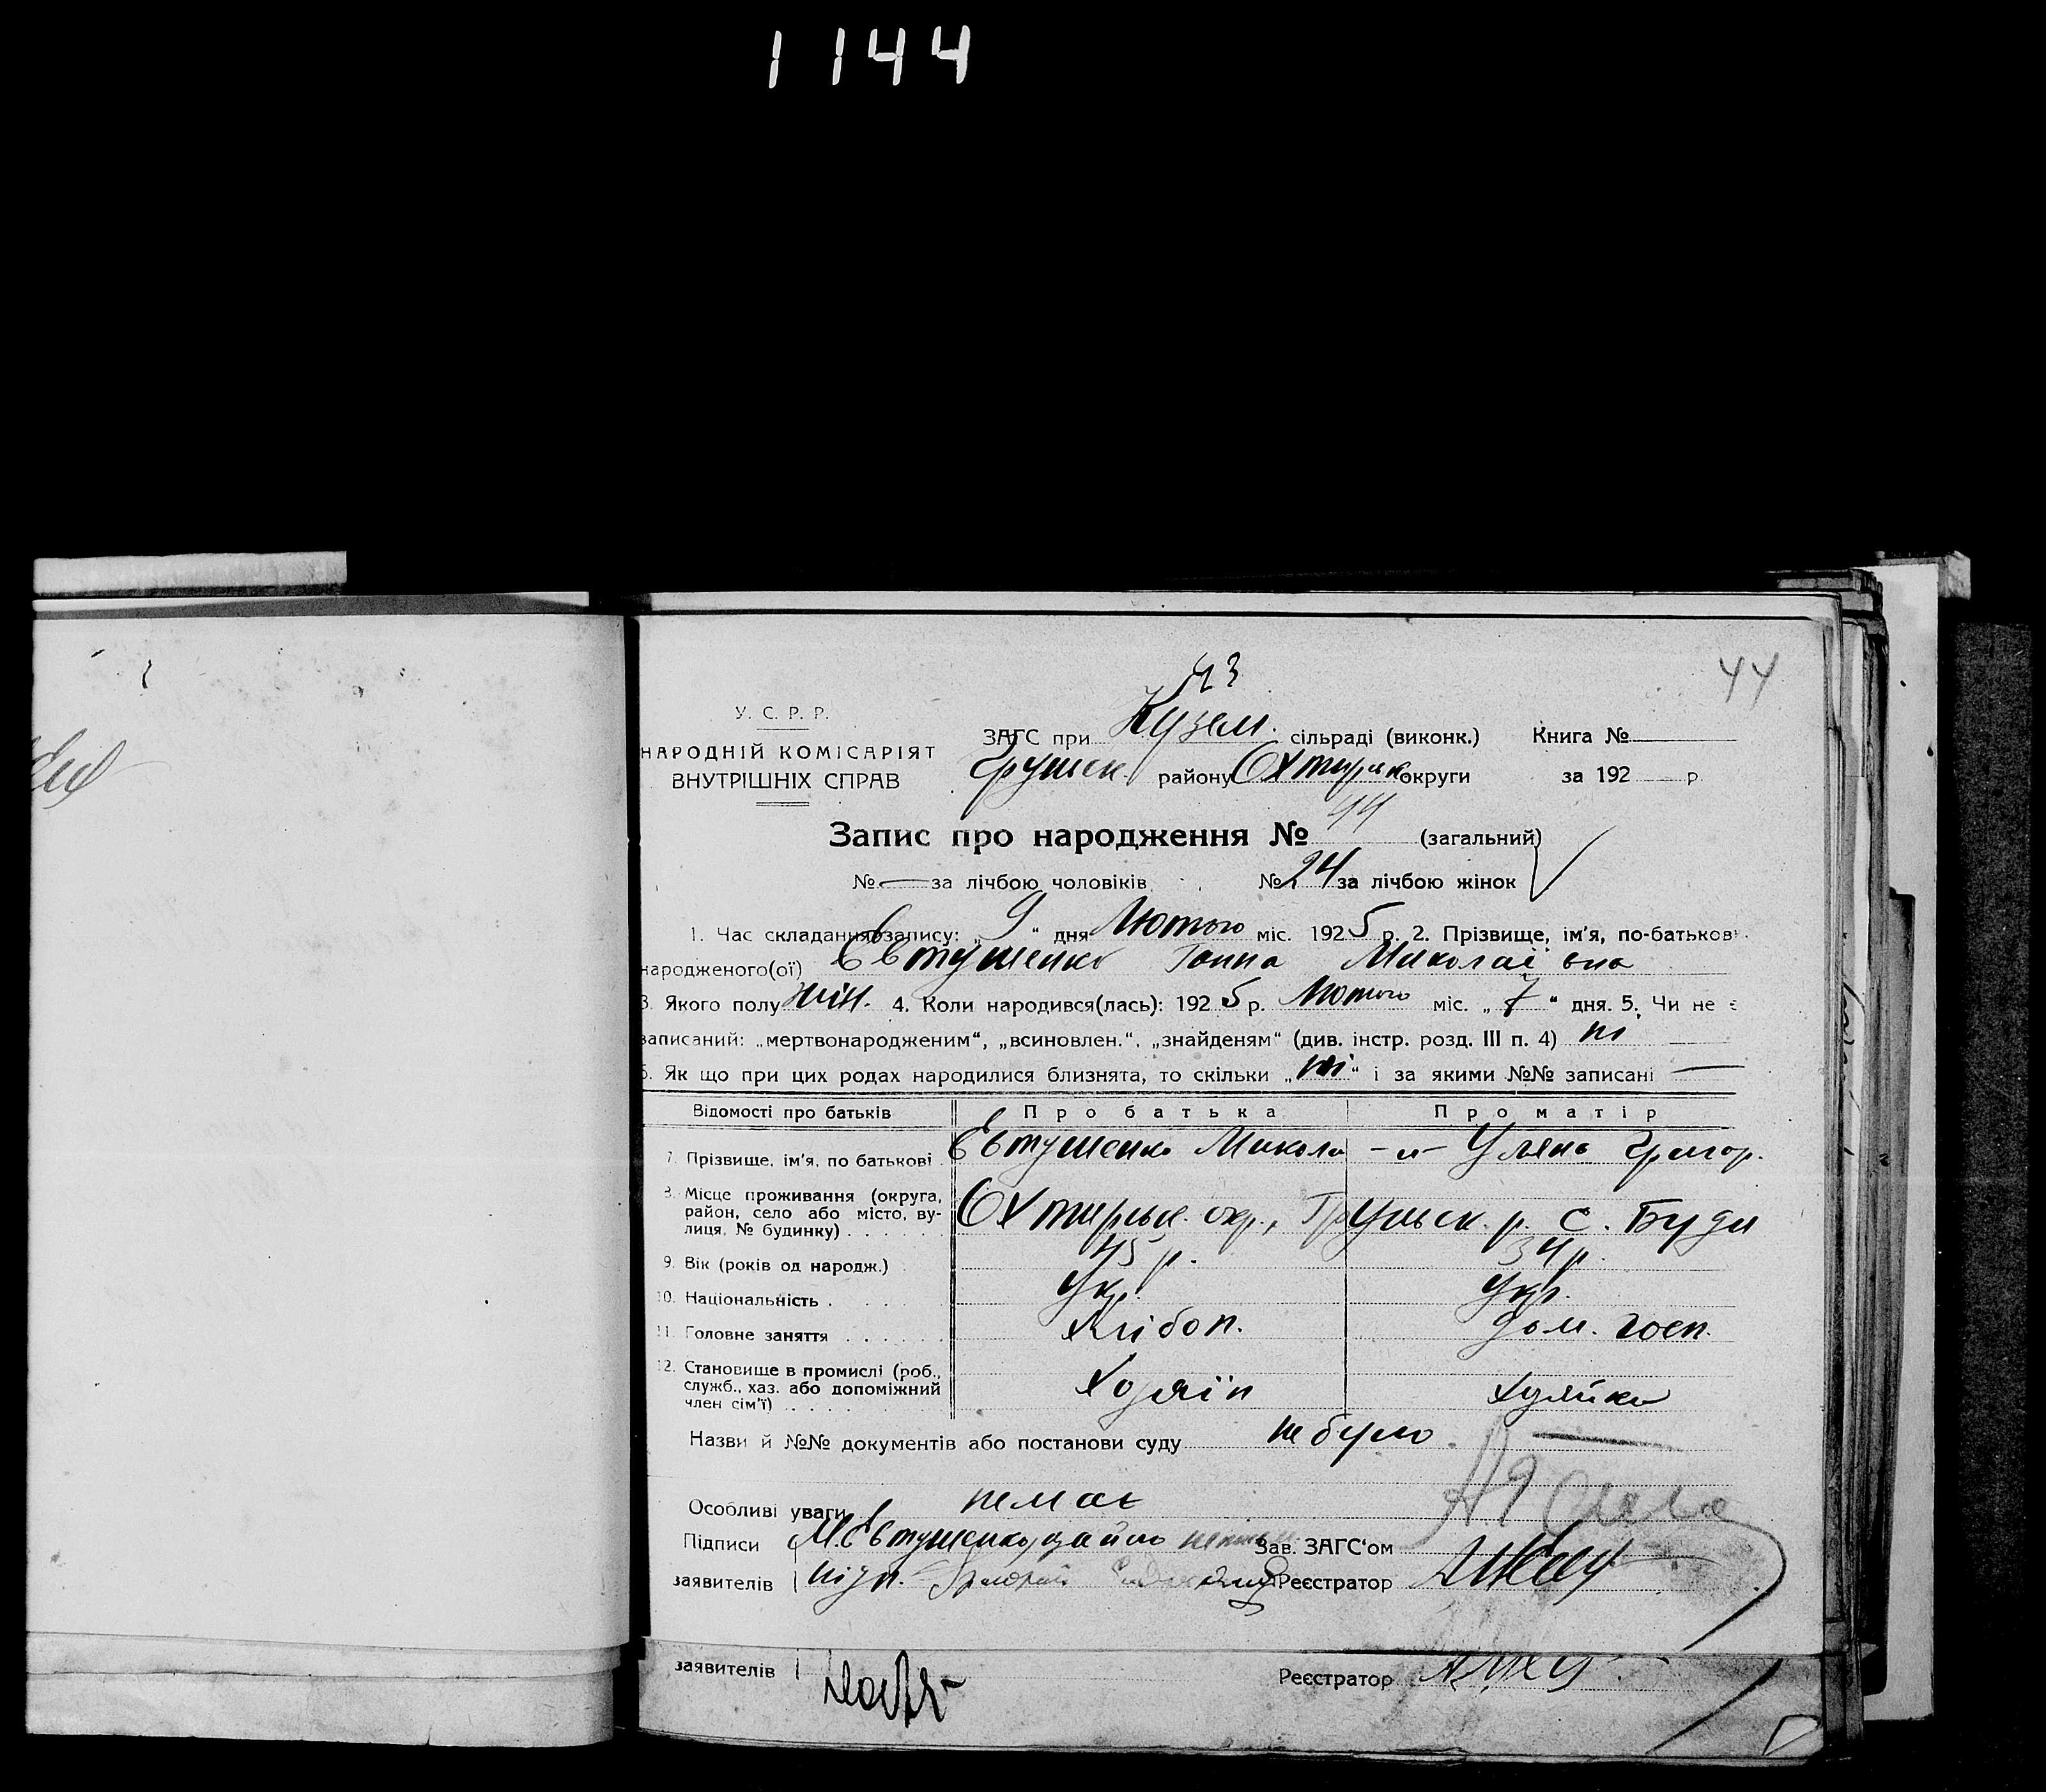 1144
43
44
У. С. Р. Р.
НАРОДНІЙ КОМІСАРІЯТ
ВНУТРІШНІХ СПРАВ
ЗАГС при Кузем. сільраді (виконк.) Книга №
Грунськ. району Охтирськ округи за 192 р.
Запис про народження № 44 (загальний)
№ — за лічбою чоловіків № 24 за лічбою жінок
1. Час складання запису: „9“ дня Лютого міс. 1925 р. 2. Прізвище, ім'я, по-батькові
народженого(ої) Евтушенко Ганна Миколаївна
3. Якого полу жін. 4. Коли народився(лась): 1925 р. Лютого міс. „7“ дня. 5. Чи не є
записаний: „мертвонародженим“, „всиновлен.“, „знайденям“ (див. інстр. розд. III п. 4) ні
6. Як що при цих родах народилися близнята, то скільки „ні“ і за якими №№ записані —
Відомості про батьків Про батька Про матір
7. Прізвище, ім'я, по батькові Евтушенко Микола -„- Уляна Григор.
8. Місце проживання (округа,
район, село або місто, ву-
лиця, № будинку) Охтирськ. окр., Грунськ. р. с. Буди
9. Вік (років од народж.) 45 р. 34 р.
10. Національність Укр. Укр.
11. Головне заняття Хлібоп. дом. госп.
12. Становище в промислі (роб.,
служб., хаз. або допоміжний
член сім'ї) Хозяїн Хузяйка
Назви й №№ документів або постанови суду не було —
Особливі уваги немає
Підписи М. Евтушенко, Зав. ЗАГС'ом
заявителів Реєстратор
заявителів Реєстратор